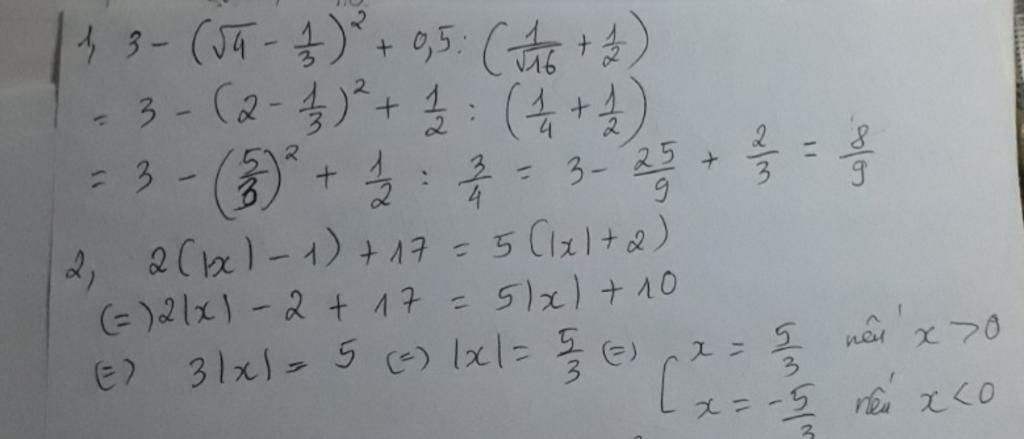 1, 3 - (√4 - 1/3)² + 0,5 : (1/√16 + 1/2)
= 3 - (2 - 1/3)² + 1/2 : (1/4 + 1/2)
= 3 - (5/3)² + 1/2 : 3/4 = 3 - 25/9 + 2/3 = 8/9
2, 2(|x| - 1) + 17 = 5(|x| + 2)
(=) 2|x| - 2 + 17 = 5|x| + 10
(=) 3|x| = 5 (=) |x| = 5/3 (=) [ x = 5/3 nếu x > 0
x = -5/3 nếu x < 0